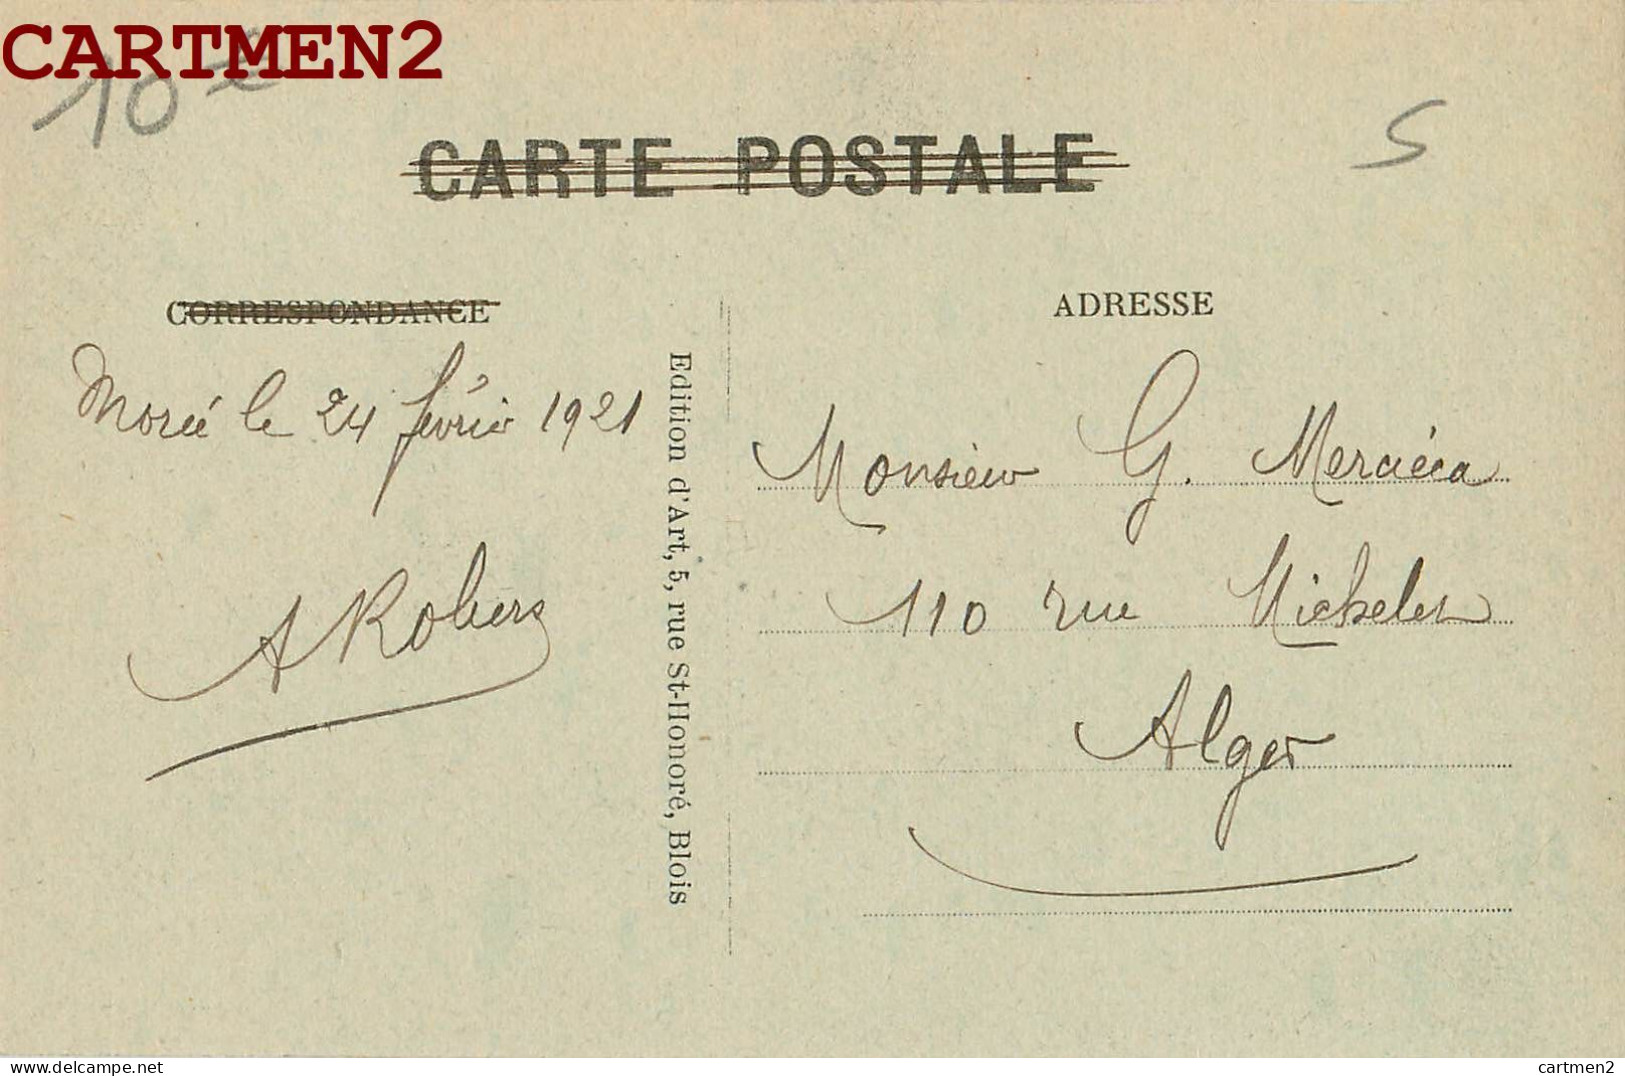 CARTMEN2
10 €
5
CARTE POSTALE
CORRESPONDANCE
Morée le 24 février 1921
A Robers
Edition d'Art, 5, rue St-Honoré, Blois
ADRESSE
Monsieur G. Merciéca
110 rue Michelet
Alger
delcampe.net
cartmen2